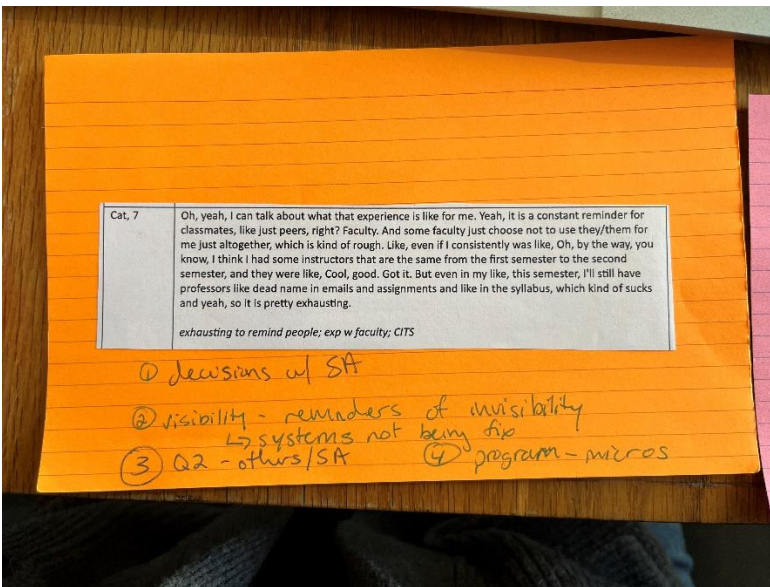 Cat, 7
Oh, yeah, I can talk about what that experience is like for me. Yeah, it is a constant reminder for
classmates, like just peers, right? Faculty. And some faculty just choose not to use they/them for
me just altogether, which is kind of rough. Like, even if I consistently was like, Oh, by the way, you
know, I think I had some instructors that are the same from the first semester to the second
semester, and they were like, Cool, good. Got it. But even in my like, this semester, I'll still have
professors like dead name in emails and assignments and like in the syllabus, which kind of sucks
and yeah, so it is pretty exhausting.
exhausting to remind people; exp w faculty; CITS
① decisions w/ SA
② visibility - reminders of invisibility
↳ systems not being fix
③ Q2 - others/SA ④ program - micros